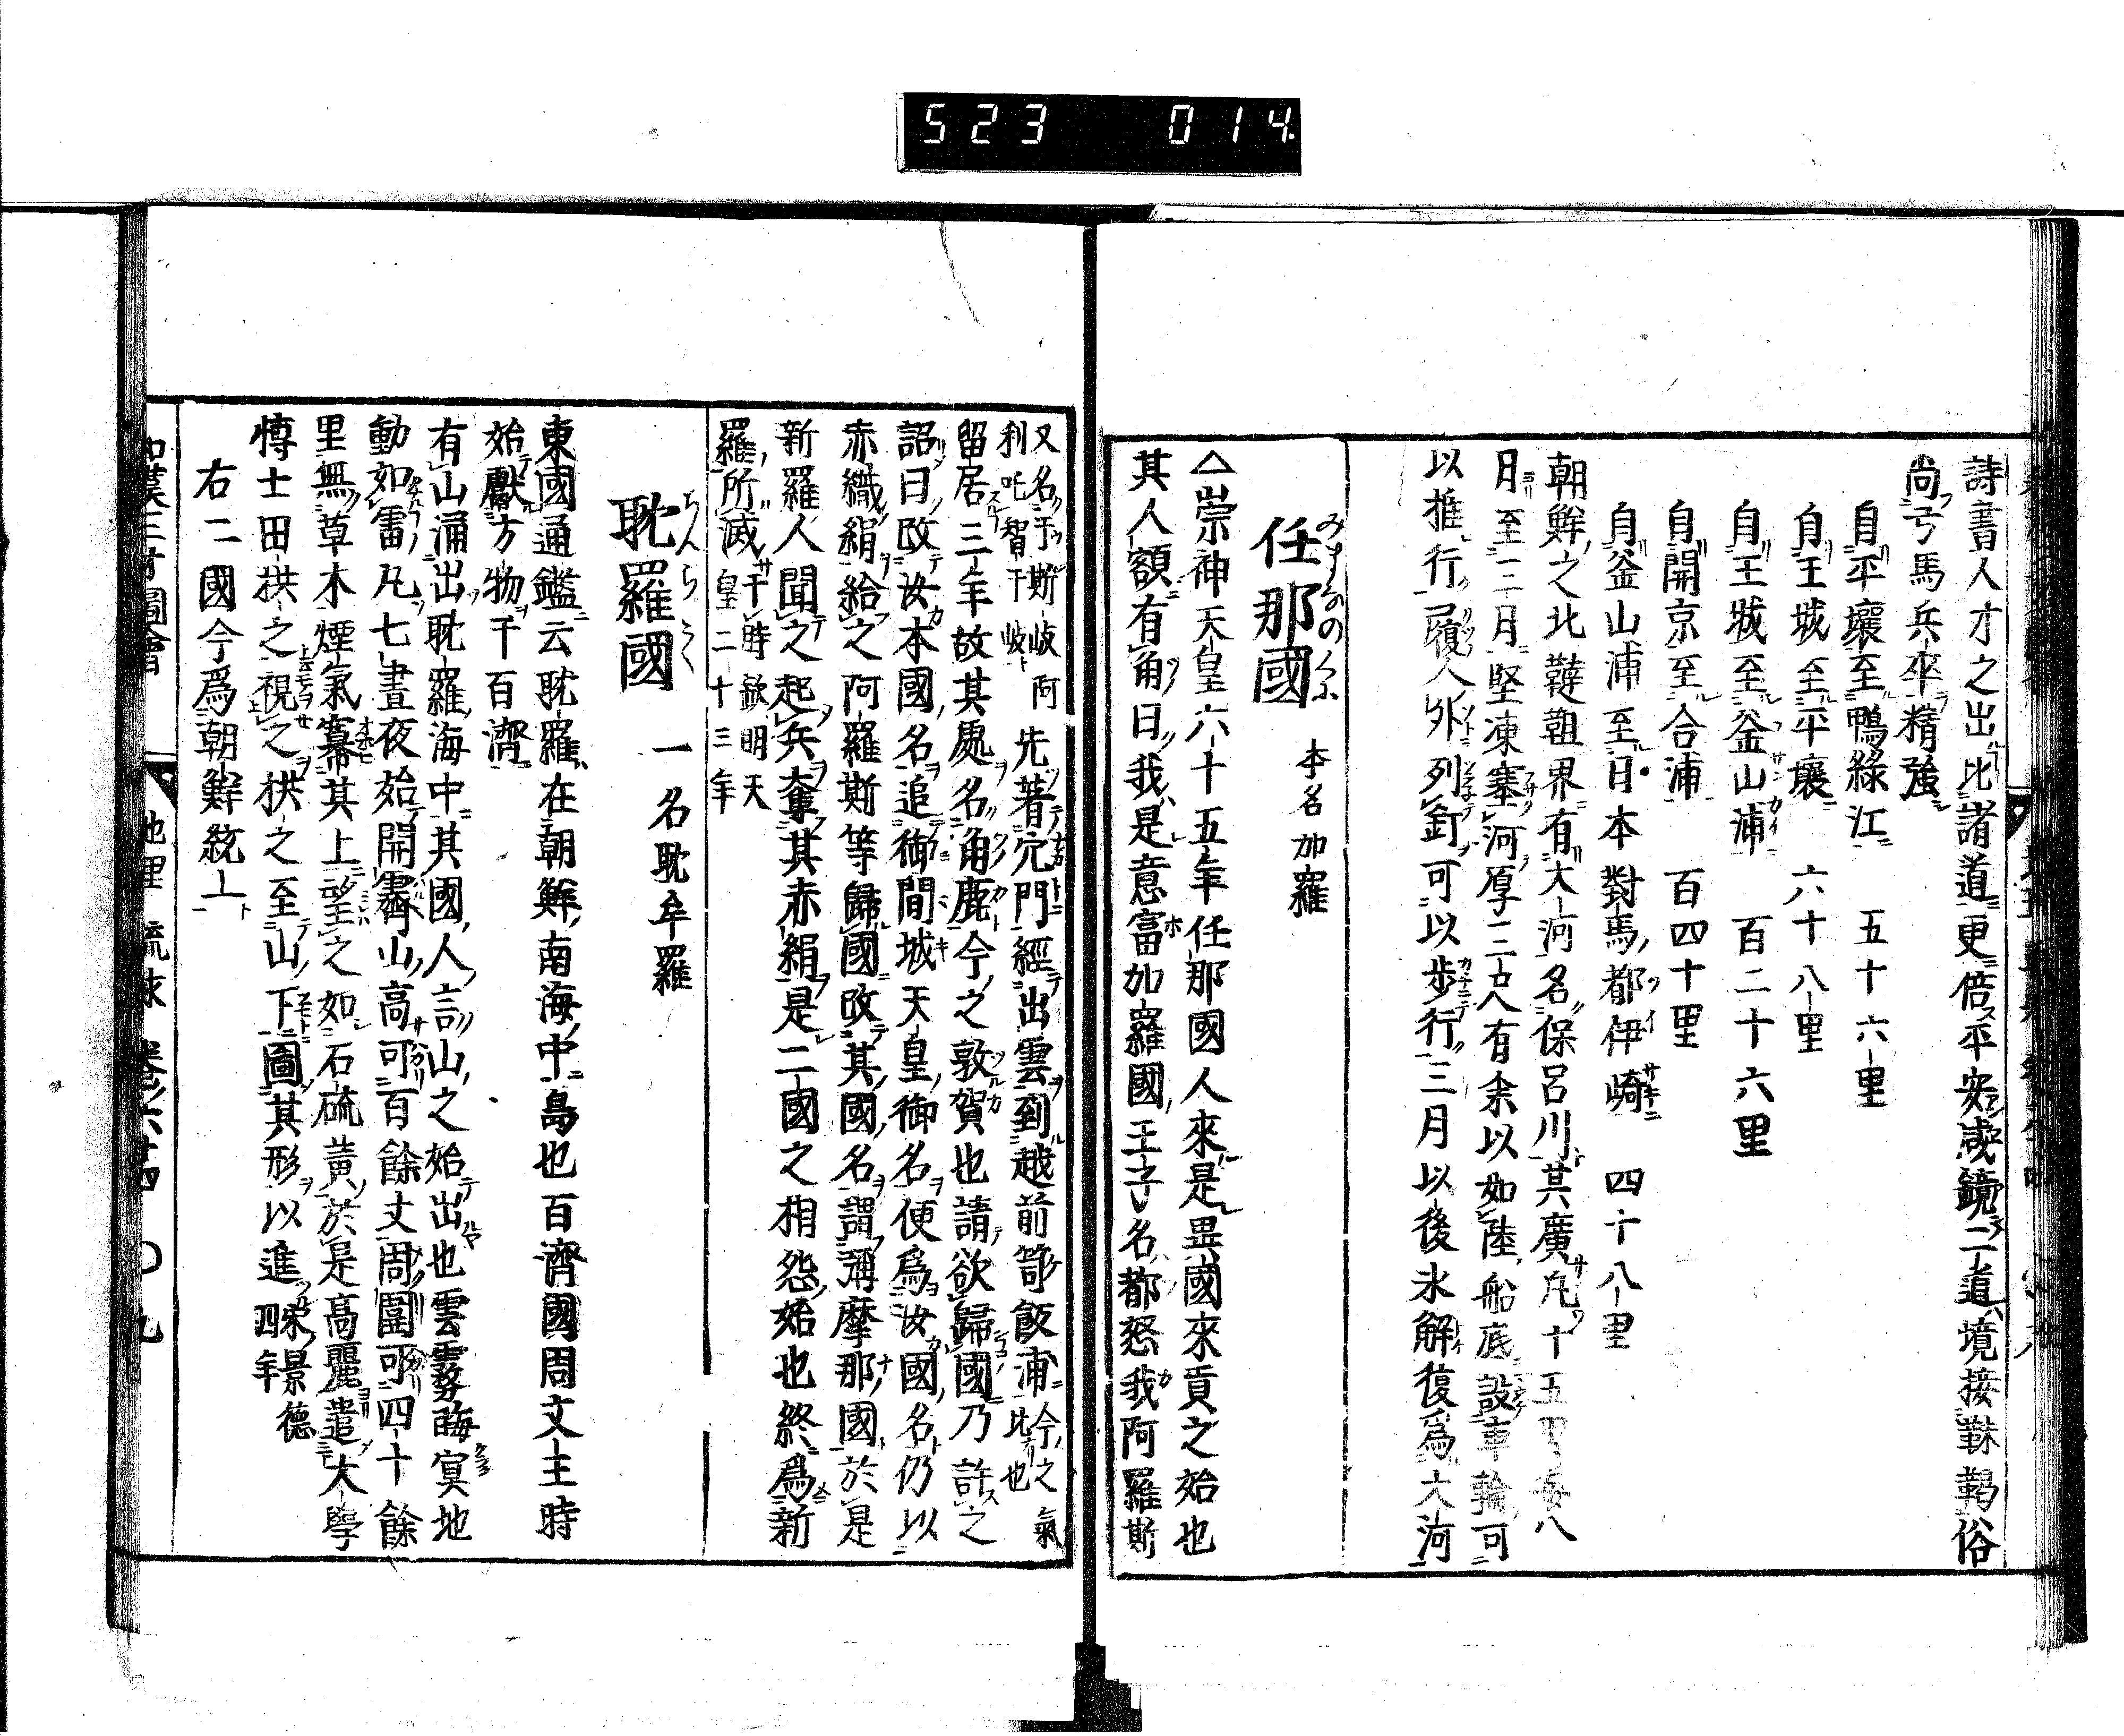 523 014
詩書人才之出比諸道更倍平安咸鏡二道境接靺鞨俗
尚弓馬兵卒精強
自平壤至鴨綠江 五十六里
自王城至平壤 六十八里
自王城至釜山浦 百二十六里
自開京至合浦 百四十里
自釜山浦至日本對馬都伊崎 四十八里
朝鮮之北韃靼界有大河名保呂川其廣凡十五里每八
月至二月堅凍塞河厚二丈有余以如陸船底設車輪可
以推行履人外列釘可以步行三月以後氷解復爲大河
任那國 みまなのくに 本名加羅
△崇神天皇六十五年任那國人來是異國來貢之始也
其人額有角曰我是意富加羅國王子名都怒我阿羅斯
又名于斯岐阿利叱智干岐 先著穴門經出雲到越前笥飯浦 今之氣比也
留居三年故其處名角鹿今之敦賀也請欲歸國乃許之
詔曰改汝本國名追御間城天皇御名便爲汝國名仍以
赤織絹給之阿羅斯等歸國改其國名謂彌摩那國於是
新羅人聞之起兵奪其赤絹是二國之相怨始也終爲新
羅所滅 于時欽明天皇二十三年
耽羅國 ちんらく 一名耽牟羅
東國通鑑云耽羅在朝鮮南海中島也百濟國周文王時
始獻方物于百濟
有山涌出耽羅海中其國人言山之始出也雲霧晦冥地
動如雷凡七晝夜始開霽山高可百餘丈周圍可四十餘
里無草木煙氣冪其上望之如石硫黃於是高麗遣大學
博士田拱之視之拱之至山下圖其形以進 宋景德四年
右二國今爲朝鮮統上
和漢三才圖會 地理 琉球 卷六十四 〇九